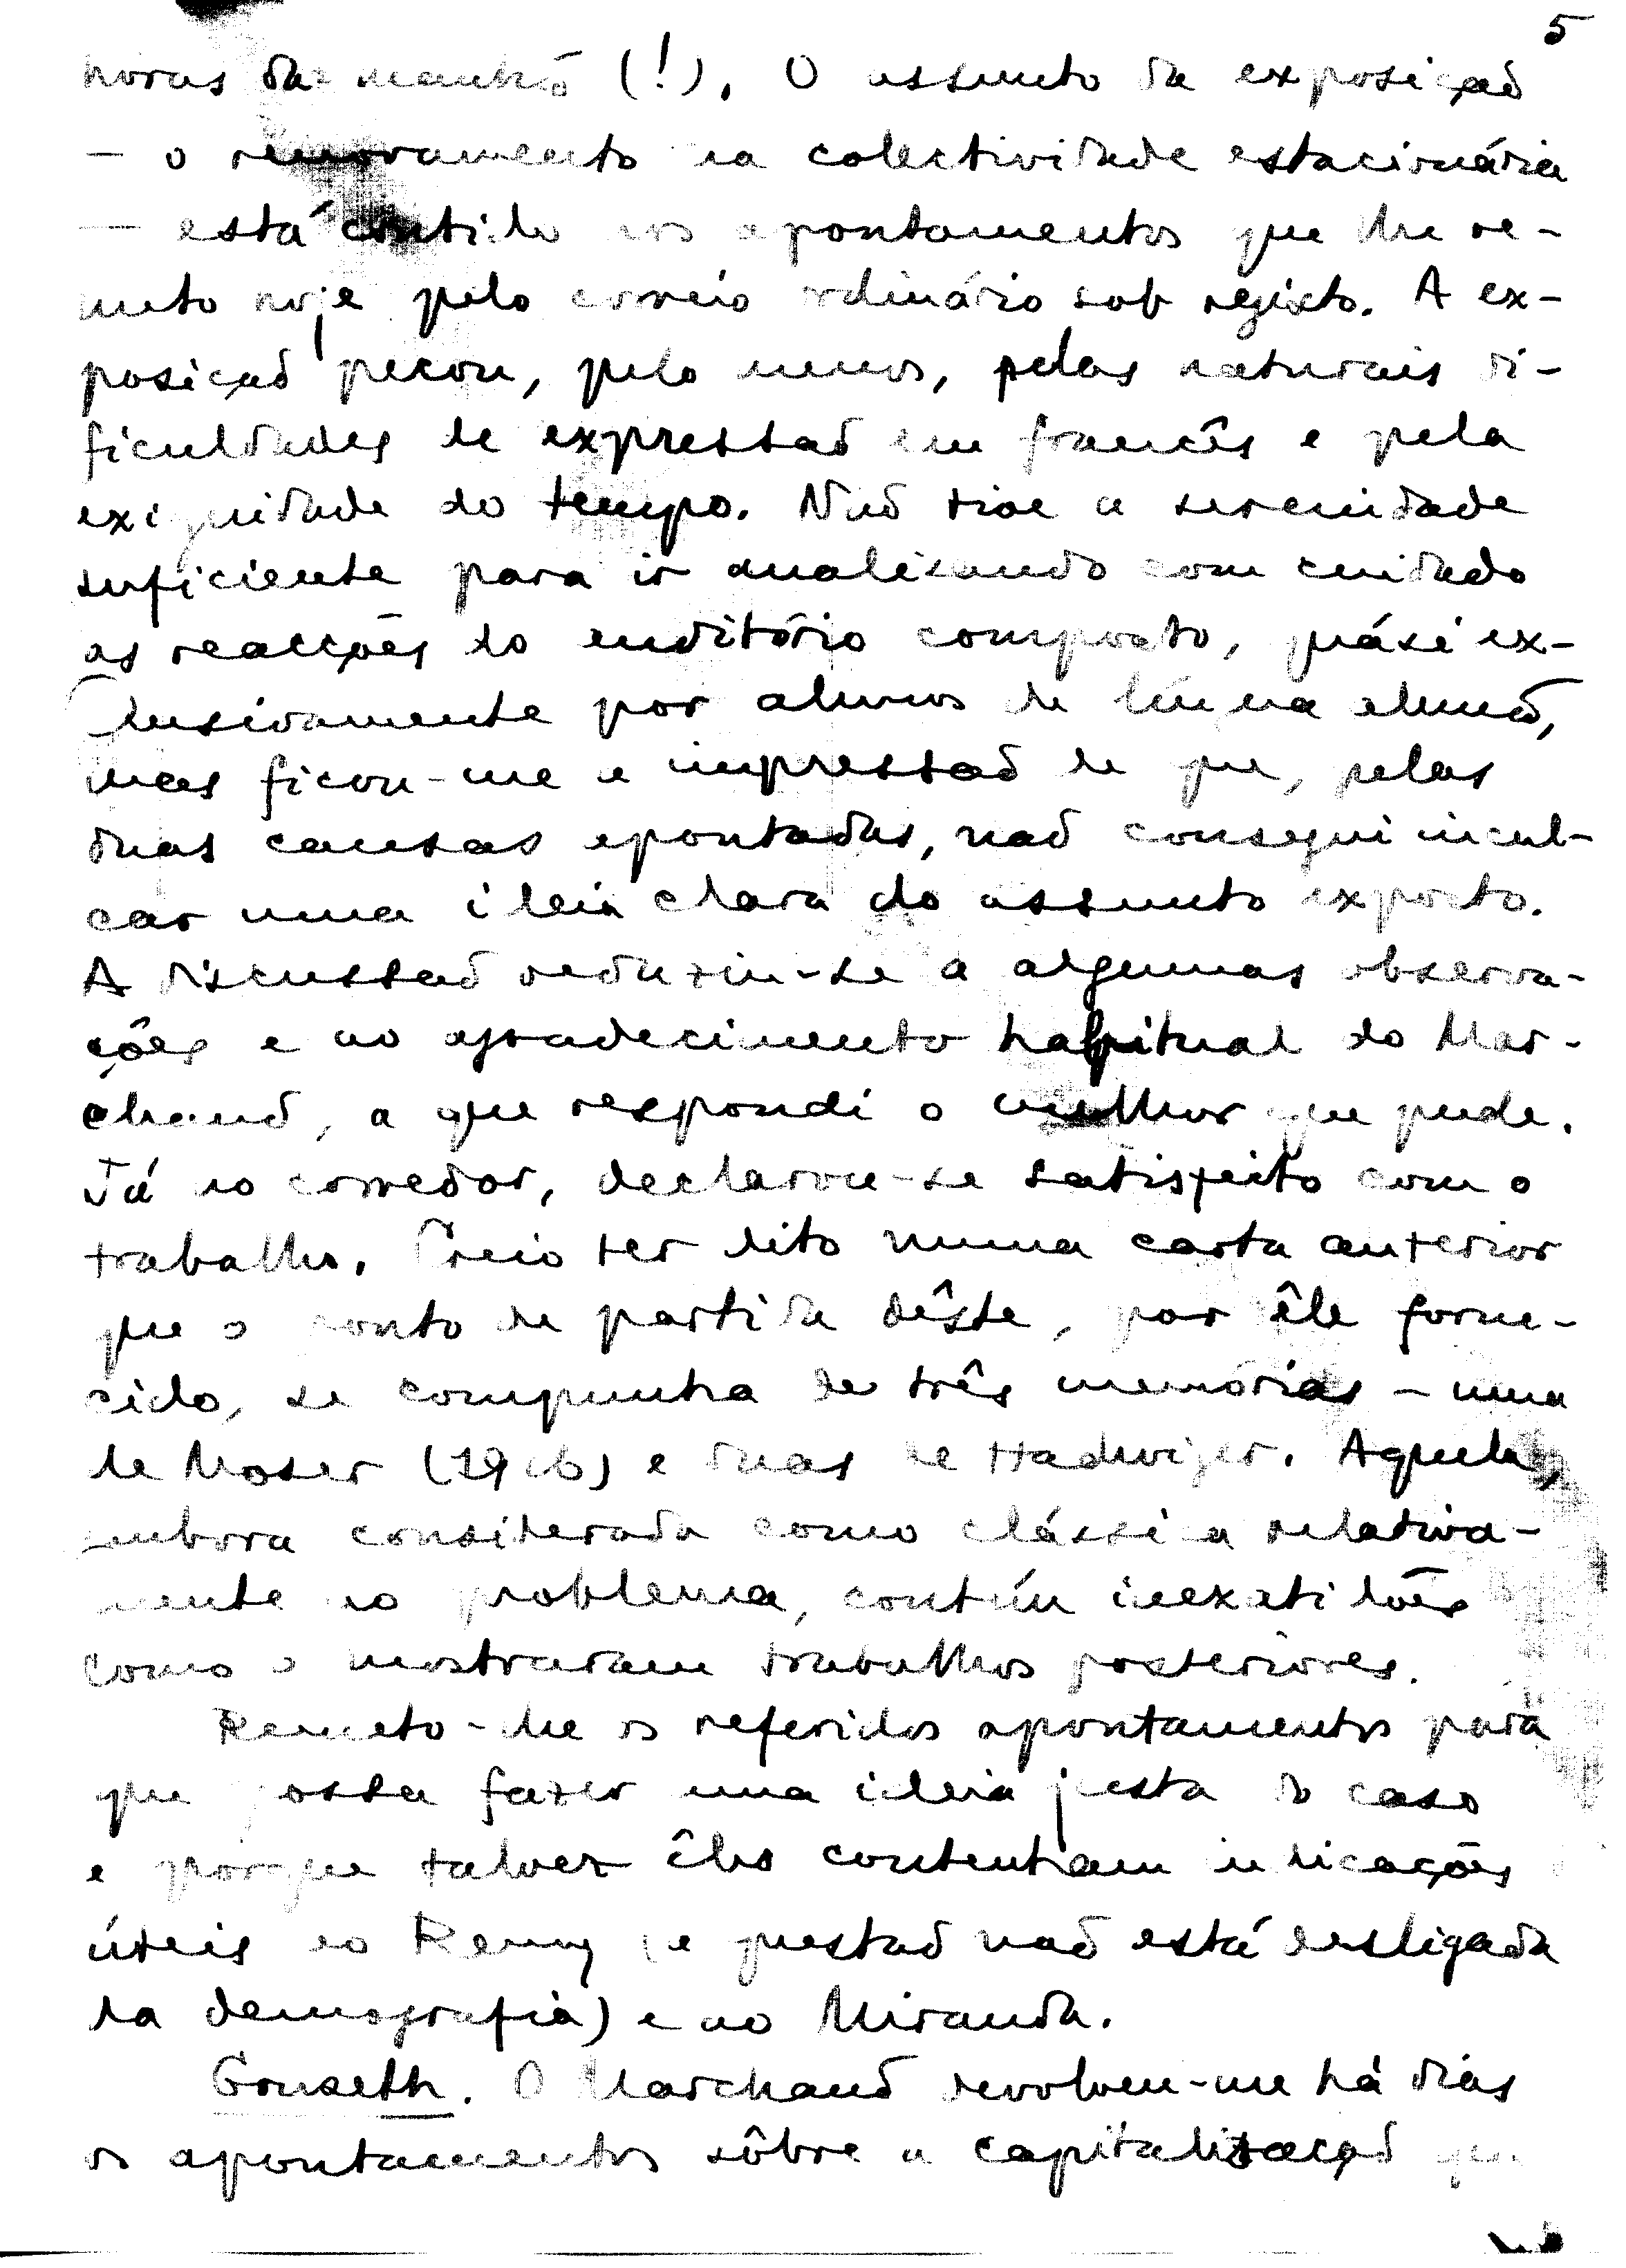 5
horas da manhã (!). O assunto da exposição
— o renovamento na colectividade estacionária
— está contido nos apontamentos que lhe re-
meto hoje pelo correio ordinário sob registo. A ex-
posição pecou, pelo menos, pelas naturais di-
ficuldades de expressão em francês e pela
exiguidade do tempo. Não tive a serenidade
suficiente para ir analisando com cuidado
as reacções do auditório composto, quási ex-
clusivamente por alunos de língua alemã,
mas ficou-me a impressão de que, pelas
duas causas apontadas, não consegui incul-
car uma ideia clara do assunto exposto.
A discussão reduziu-se a algumas observa-
ções e ao agradecimento habitual do Mar-
chand, a que respondi o melhor que pude.
Já no corredor, declarou-se satisfeito com o
trabalho. Creio ter dito numa carta anterior
que o ponto de partida dêste, por êle forne-
cido, se compunha de três memórias - uma
de Moser (1926) e duas de Hadwiger. Aquela,
embora considerada como clássica relativa-
mente ao problema, contém inexatidões
como o mostraram trabalhos posteriores.
Remeto-lhe os referidos apontamentos para
que possa fazer uma ideia justa do caso
e porque talvez êles contenham indicações
úteis ao Remy (a questão não está desligada
da demografia) e ao Miranda.
Gonseth. O Marchand devolveu-me há dias
os apontamentos sôbre a capitalização que